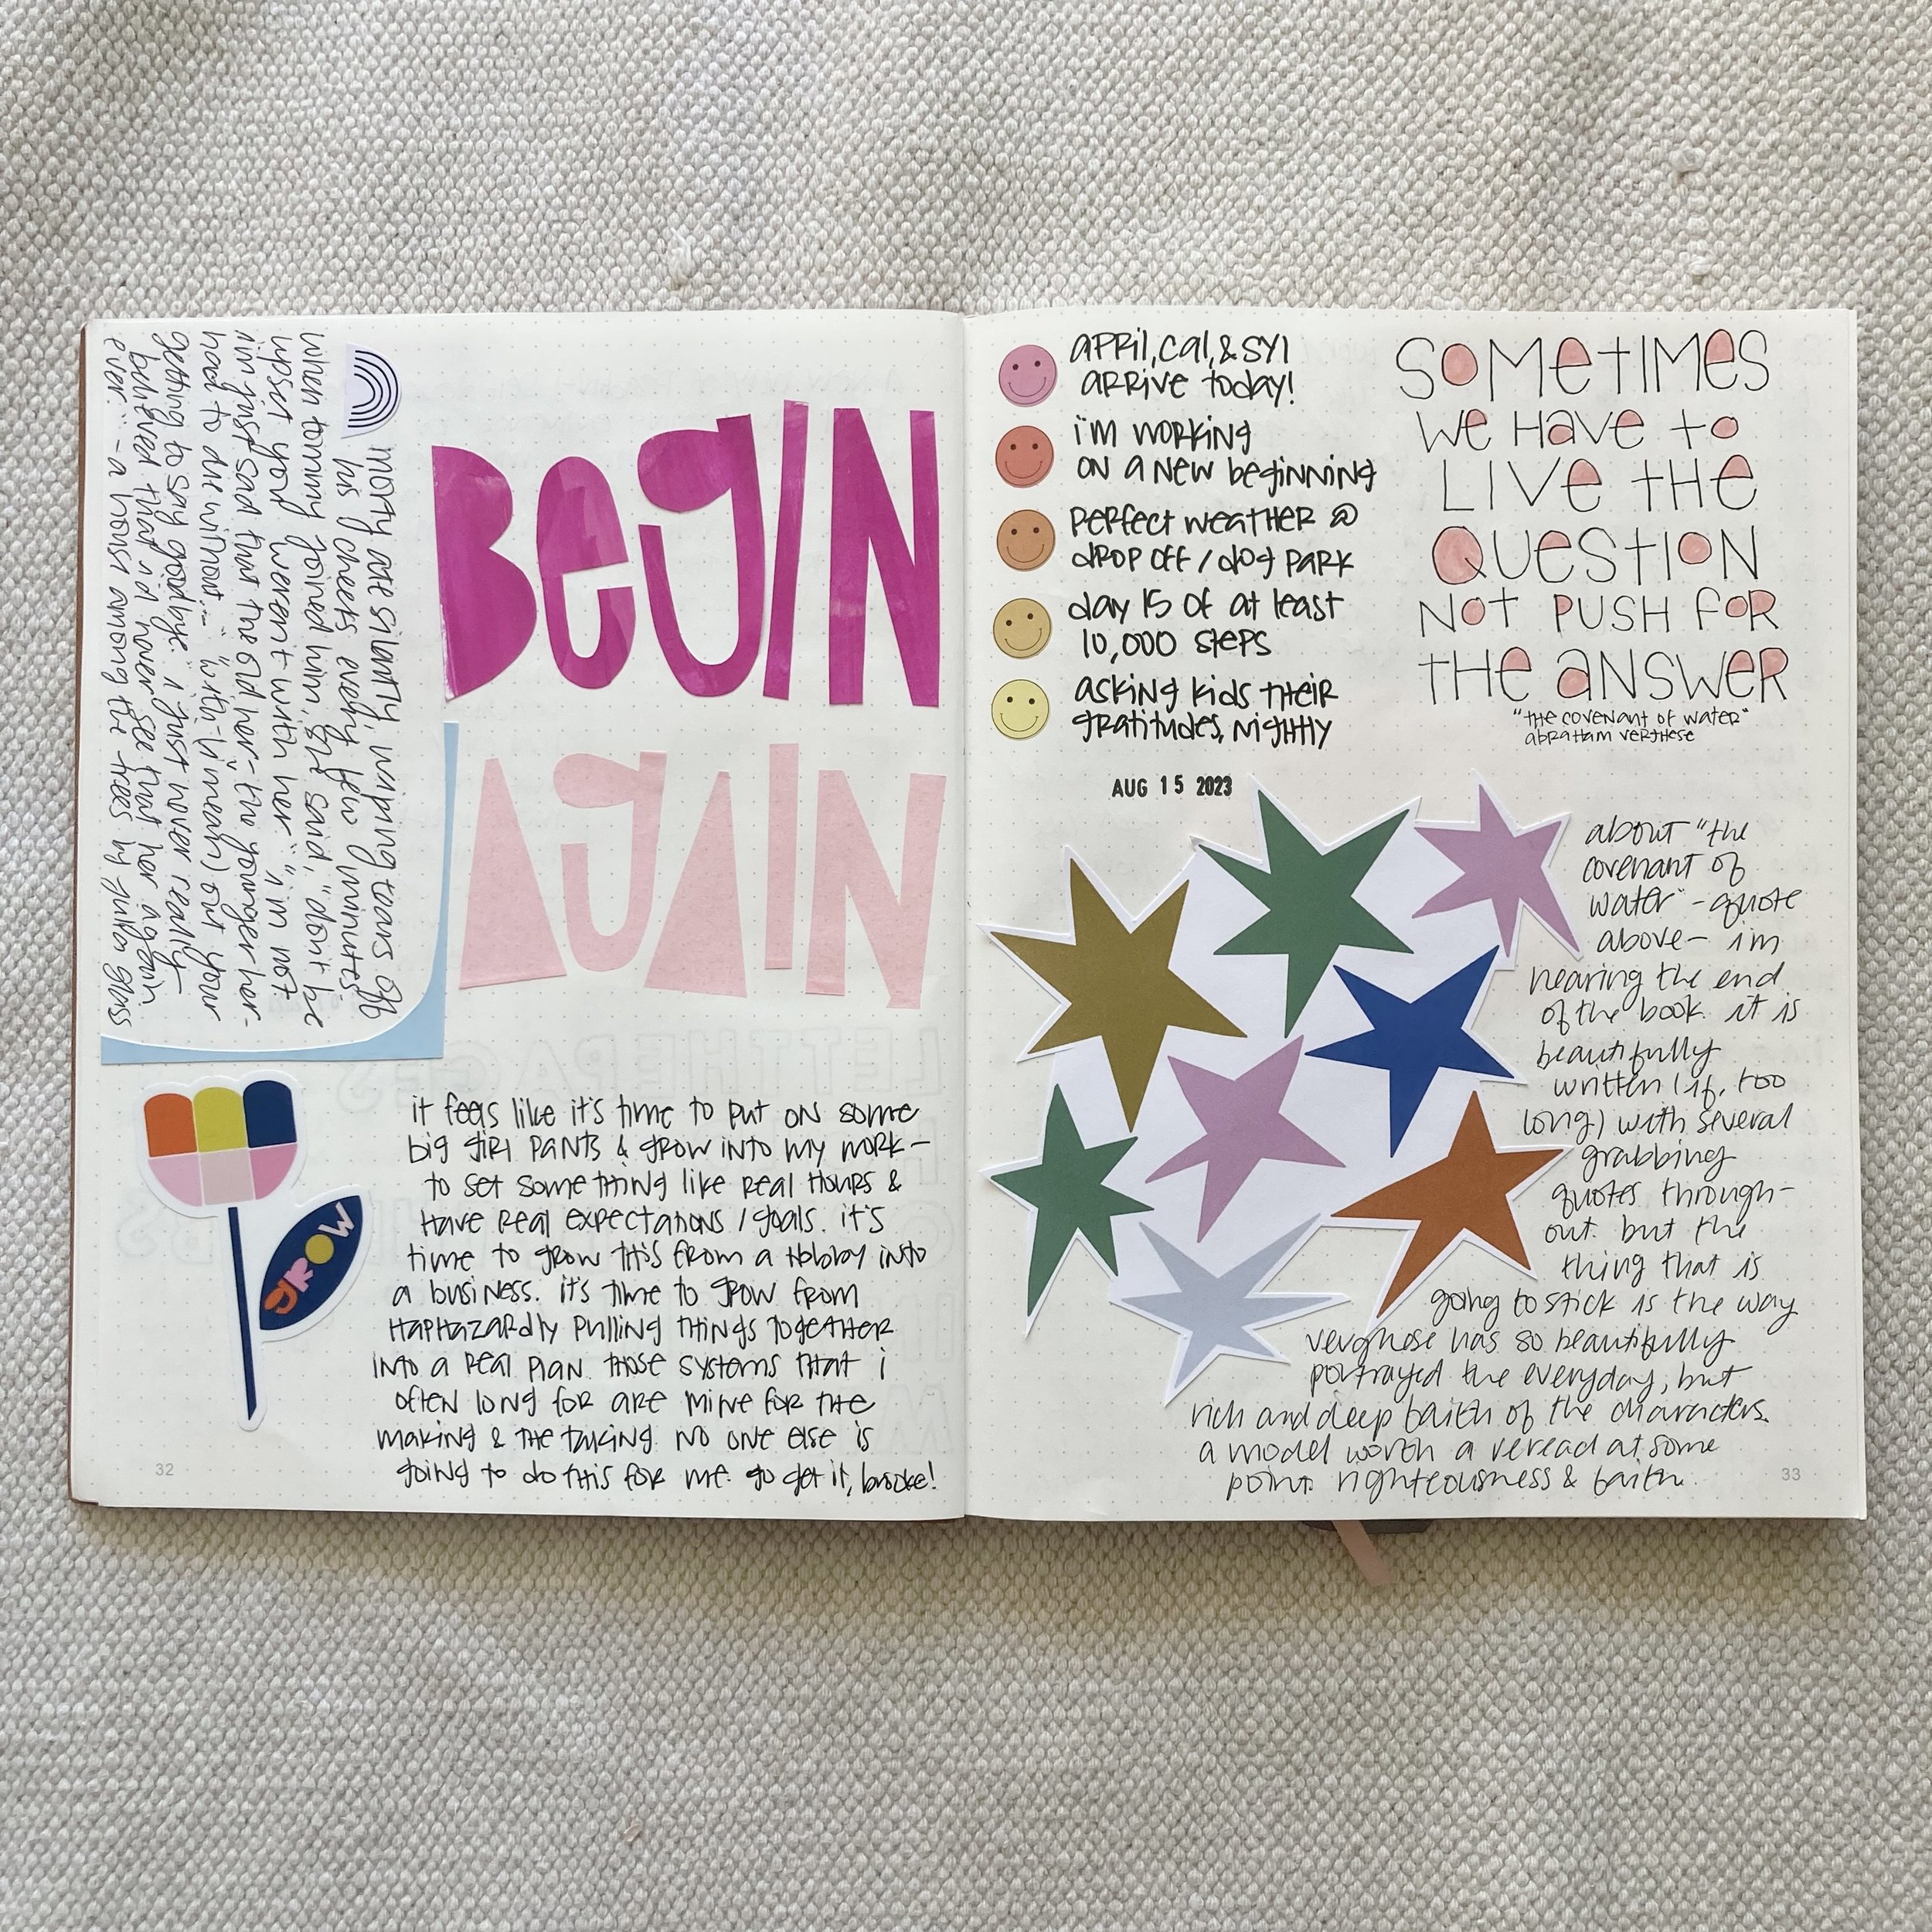 morty ate silently, wiping tears off
his cheeks every few minutes.
when tommy joined him, she said, "don't be
upset you weren't with her." "i'm not
i'm just sad that the old her - the younger her -
had to die without..." out your
getting to say goodbye. i just never really
believed that i'd never see that her again,
ever." - a house among the trees by julia glass
BeGIN
AGAIN
GROW
it feels like it's time to put on some
big girl pants & grow into my work -
to set something like real hours &
have real expectations / goals. it's
time to grow this from a hobby into
a business. it's time to grow from
haphazardly pulling things together
into a real plan. those systems that i
often long for are mine for the
making & the taking. no one else is
going to do this for me. go get it, brooke!
32
april, cal, & syl
arrive today!
i'm working
on a new beginning
perfect weather @
drop off / dog park
day 15 of at least
10,000 steps
asking kids their
gratitudes, nightly
AUG 15 2023
SOMetIMeS
We Have to
LIVe tHe
QUeStION
NOt PUSH FOR
tHe aNSWeR
"the covenant of water"
abraham verghese
about "the
covenant of
water" - quote
above - i'm
nearing the end
of the book. it is
beautifully
written (if, too
long) with several
grabbing
quotes through-
out. but the
thing that is
going to stick is the way
verghese has so beautifully
portrayed the everyday, but
rich and deep faith of the characters.
a model worth a reread at some
point. righteousness & faith.
33